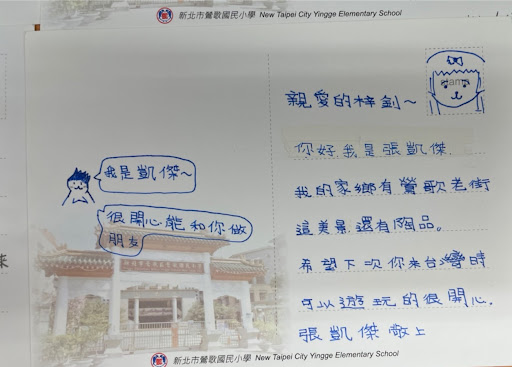 新北市鶯歌國民小學 New Taipei City Yingge Elementary School
我是凱傑~
很開心能和你做
朋友
stamp
親愛的梓釗~
你好我是張凱傑.
我的家鄉有鶯歌老街
這美景還有陶品。
希望下次你來台灣時
可以遊玩的很開心.
張凱傑敬上
新北市鶯歌國民小學 New Taipei City Yingge Elementary School